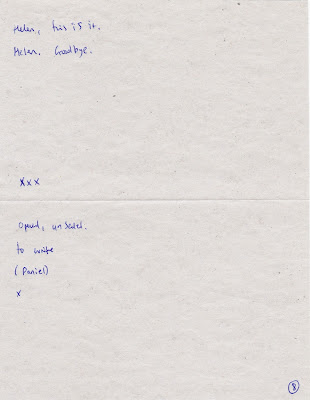 Helen, this is it.
Helen. Goodbye.
xxx
Opened, unsealed.
to write
(Daniel)
x
8